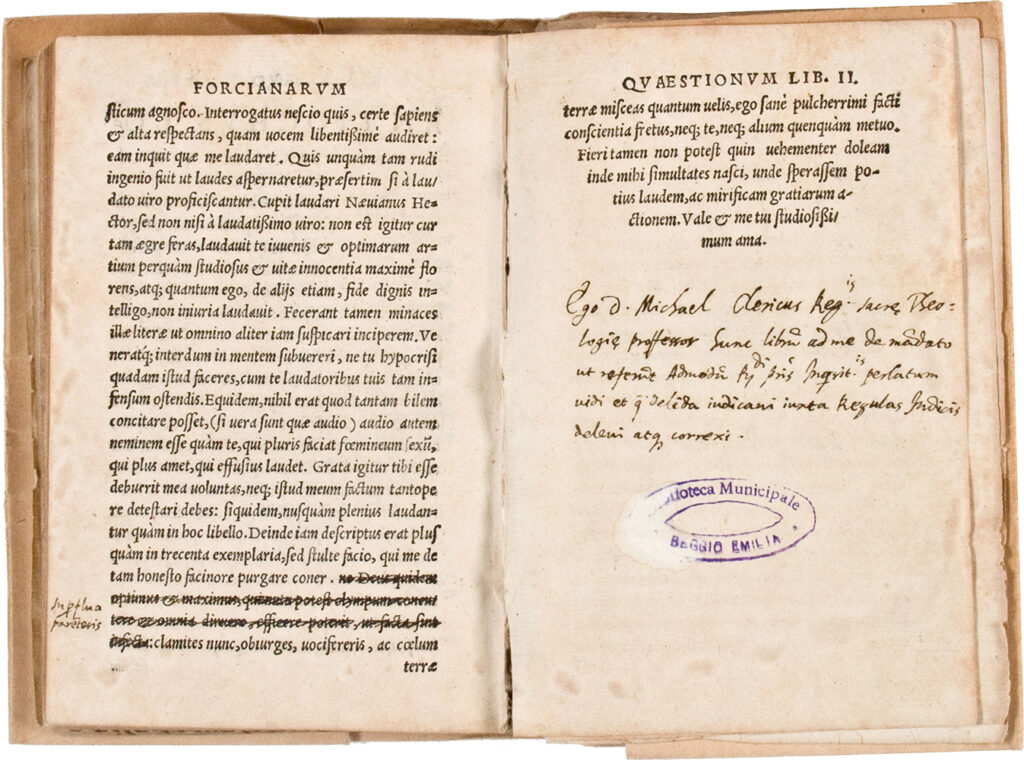 FORCIANARVM
sticum agnosco. Interrogatus nescio quis, certe sapiens
& alta respectans, quam uocem libentißimè audiret:
eam inquit quæ me laudaret. Quis unquàm tam rudi
ingenio fuit ut laudes aspernaretur, præsertim si à lau/
dato uiro proficiscantur. Cupit laudari Næuianus He=
ctor, sed non nisi à laudatißimo uiro: non est igitur cur
tam ægre feras, laudauit te iuuenis & optimarum ar=
tium perquàm studiosus & uitæ innocentia maximè flo
rens, atq; quantum ego, de alijs etiam, fide dignis in=
telligo, non iniuria laudauit. Fecerant tamen minaces
illæ literæ ut omnino aliter iam suspicari inciperem. Ve
neratq; interdum in mentem subuereri, ne tu hypocrisi
quadam istud faceres, cum te laudatoribus tuis tam in=
fensum ostendis. Equidem, nihil erat quod tantam bilem
concitare posset, (si uera sunt quæ audio) audio autem
neminem esse quàm te, qui pluris faciat fœmineum sexũ,
qui plus amet, qui effusius laudet. Grata igitur tibi esse
debuerit mea uoluntas, neq; istud meum factum tantope
re detestari debes: siquidem, nusquàm plenius laudan=
tur quàm in hoc libello. Deinde iam descriptus erat plus
quàm in trecenta exemplaria, sed stulte facio, qui me de
tam honesto facinore purgare coner. ne Deus quidem
optimus & maximus, potest olympum
&amp; omnia diruere, efficere poterit, ut facta sint
infecta: clamites nunc, obiurges, uocifereris, ac cœlum
terræ
QVAESTIONVM LIB. II.
terræ misceas quantum uelis, ego sanè pulcherrimi facti
conscientia fretus, neq; te, neq; alium quenquàm metuo.
Fieri tamen non potest quin uehementer doleam
inde mihi simultates nasci, unde sperassem po=
tius laudem, ac mirificam gratiarum a=
ctionem. Vale & me tui studiosißi/
mum ama.
Ego D. Michael Clericus Reg.is sacrę Theo=
logię professor hunc librũ ad me de mãdato
ut referũt Admodũ Rdi pris Inqsit.is perlatum
uidi et q̃ delẽda iudicaui iuxta Regulas Indicis
deleui atq correxi.
Biblioteca Municipale
REGGIO EMILIA